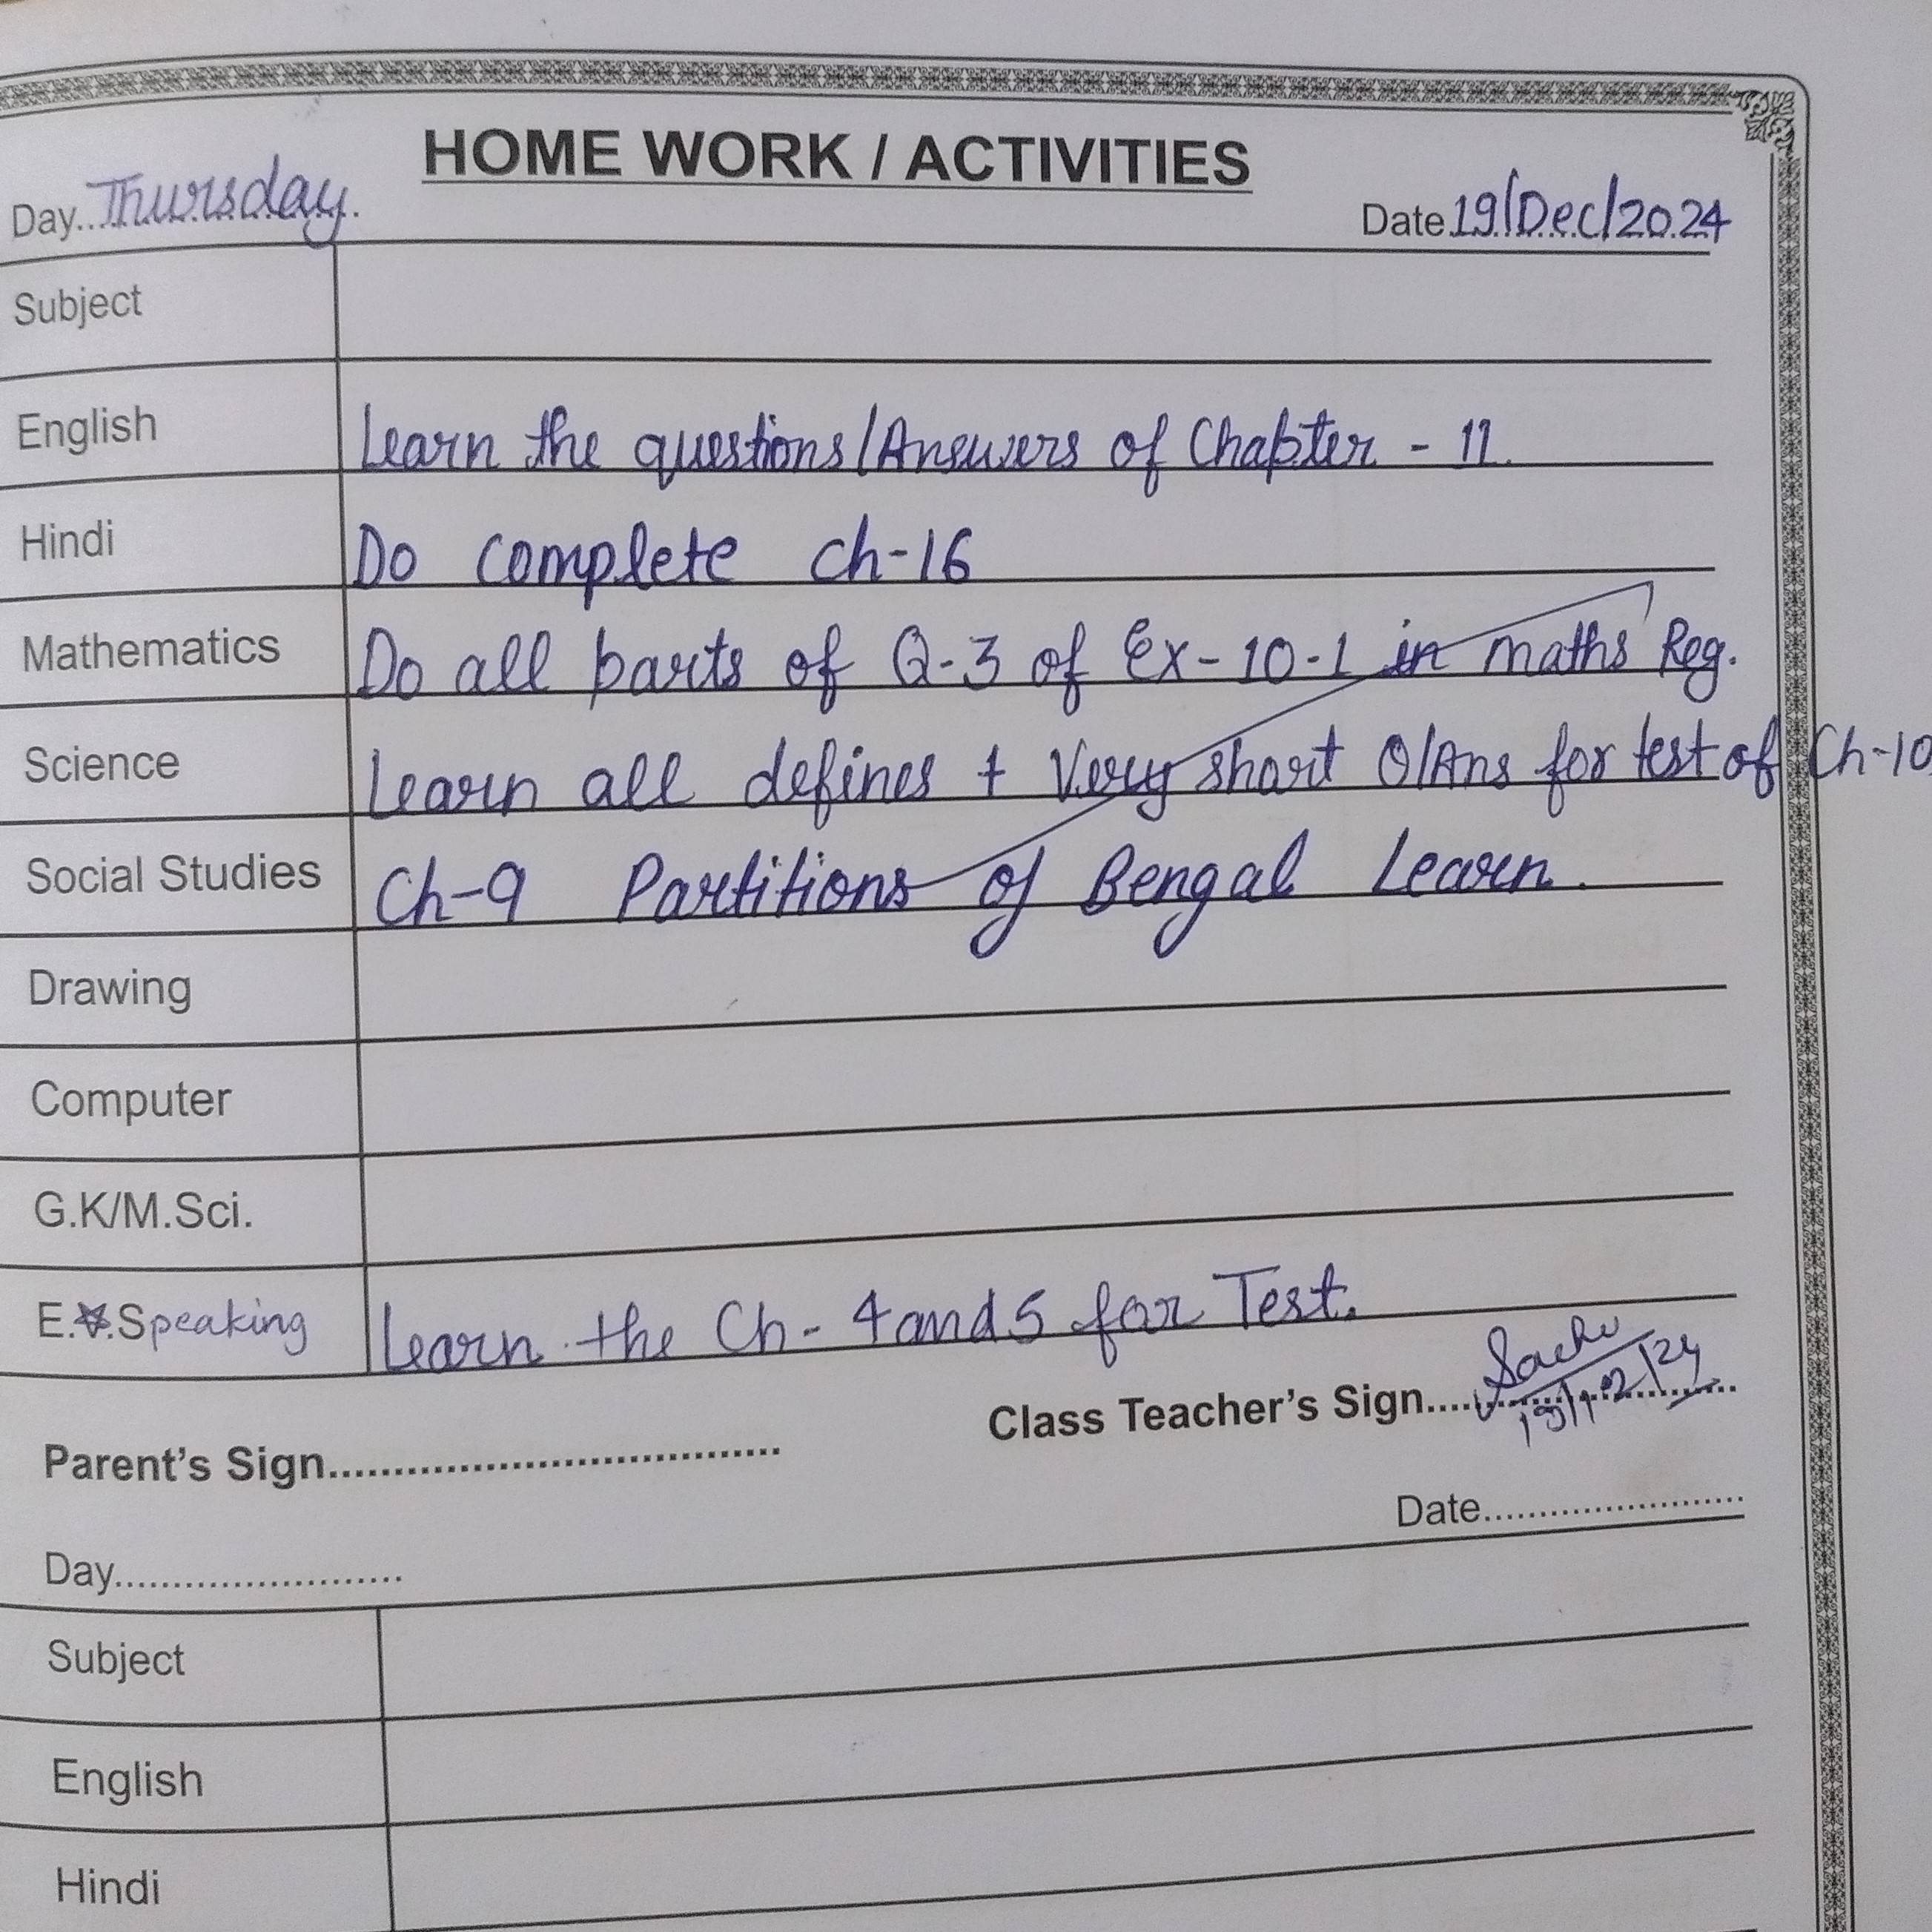 HOME WORK / ACTIVITIES
Day..Thursday. Date.19/Dec/2024
Subject
English Learn the questions/Answers of Chapter - 11.
Hindi Do complete ch-16
Mathematics Do all parts of Q-3 of Ex-10-1 in maths Reg.
Science Learn all defines + Very short Q/Ans for test of Ch-10
Social Studies Ch-9 Partitions of Bengal Learn.
Drawing
Computer
G.K/M.Sci.
E.Speaking Learn the Ch- 4 and 5 for Test.
Class Teacher's Sign.... 19/12/24
Parent's Sign....................................
Date........................
Day........................
Subject
English
Hindi